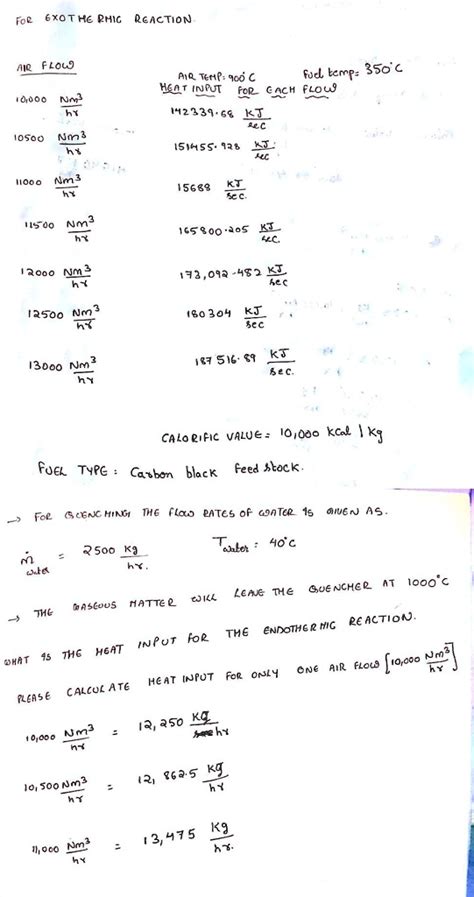 FOR EXOTHERMIC REACTION.
AIR FLOW
AIR TEMP: 900°C Fuel temp= 350°C
HEAT INPUT FOR EACH FLOW
10,000 Nm3/hr 142339.68 KJ/sec
10500 Nm3/hr 151455.928 KJ/sec
11000 Nm3/hr 15688 KJ/sec.
11500 Nm3/hr 165800.205 KJ/sec.
12000 Nm3/hr 173,092.482 KJ/sec
12500 Nm3/hr 180304 KJ/sec
13000 Nm3/hr 187516.89 KJ/sec.
CALORIFIC VALUE= 10,000 Kcal / Kg
FUEL TYPE: Carbon black feed stock.
→ FOR QUENCHING THE FLOW RATES OF WATER IS GIVEN AS.
ṁ water = 2500 Kg/hr. Twater: 40°C
→ THE GASEOUS MATTER WILL LEAVE THE QUENCHER AT 1000°C
WHAT IS THE HEAT INPUT FOR THE ENDOTHERMIC REACTION.
PLEASE CALCULATE HEAT INPUT FOR ONLY ONE AIR FLOW [10,000 Nm3/hr]
10,000 Nm3/hr = 12,250 Kg/hr
10,500 Nm3/hr = 12,862.5 Kg/hr
11,000 Nm3/hr = 13,475 Kg/hr.